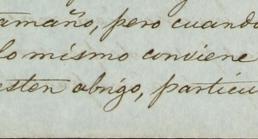 amaño, pero cuando
lo mismo conviene
esten abrigo, particu